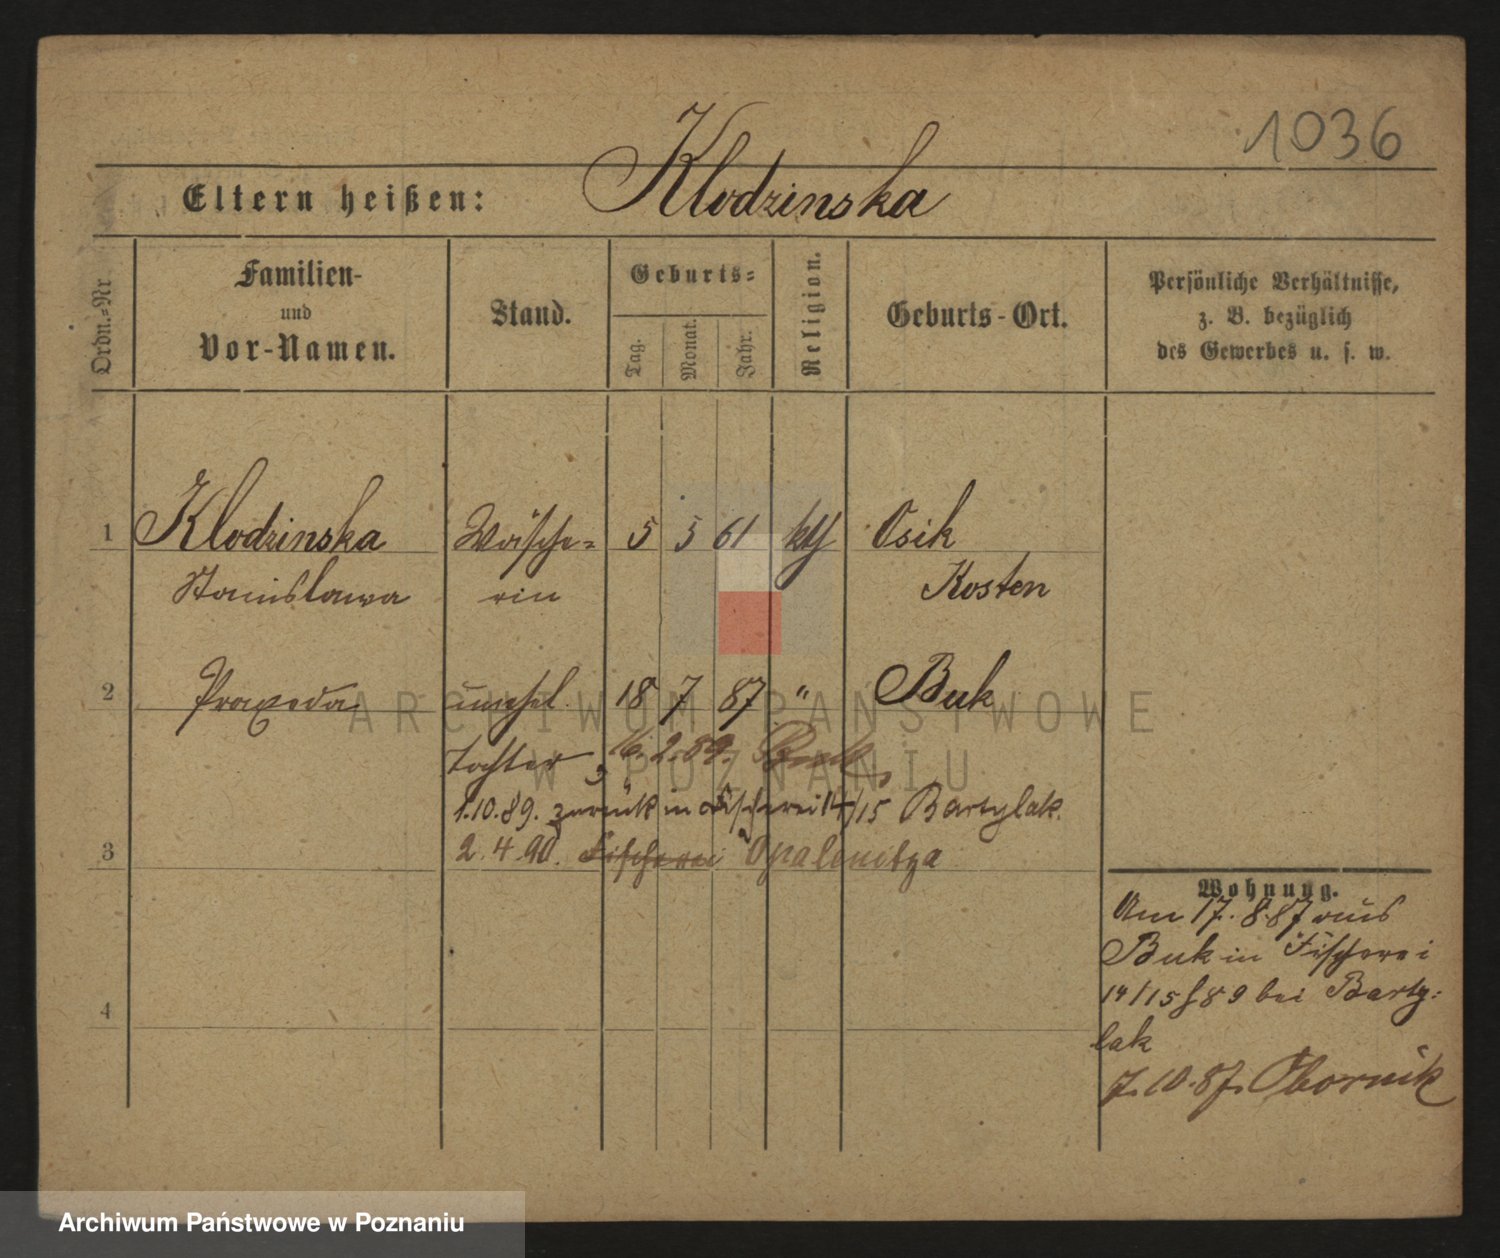 1036
Klodzinska
Eltern heißen:
Ordn.-Nr
Familien-
und
Vor-Namen.
Stand.
Geburts-
Tag.
Monat.
Jahr.
Religion.
Geburts-Ort.
Persönliche Verhältnisse,
z. B. bezüglich
des Gewerbes u. s. w.
1 Klodzinska Wäsche- 5 5 61 kth Osik
Stanislawa rin Kosten
2 Praxeda unehel. 18 7 87 " Buk
Tochter 16.2.89.
1.10.89. zurück in Fischerei 14/15 Bartylak.
3 2.4.90. Fischerei Opalenitza
4
Wohnung.
Am 17.8.87 aus
Buk in Fischerei
14/15 bei Barty-
lak
7.10.87. Obornik
ARCHIWUM PAŃSTWOWE
W POZNANIU
Archiwum Państwowe w Poznaniu